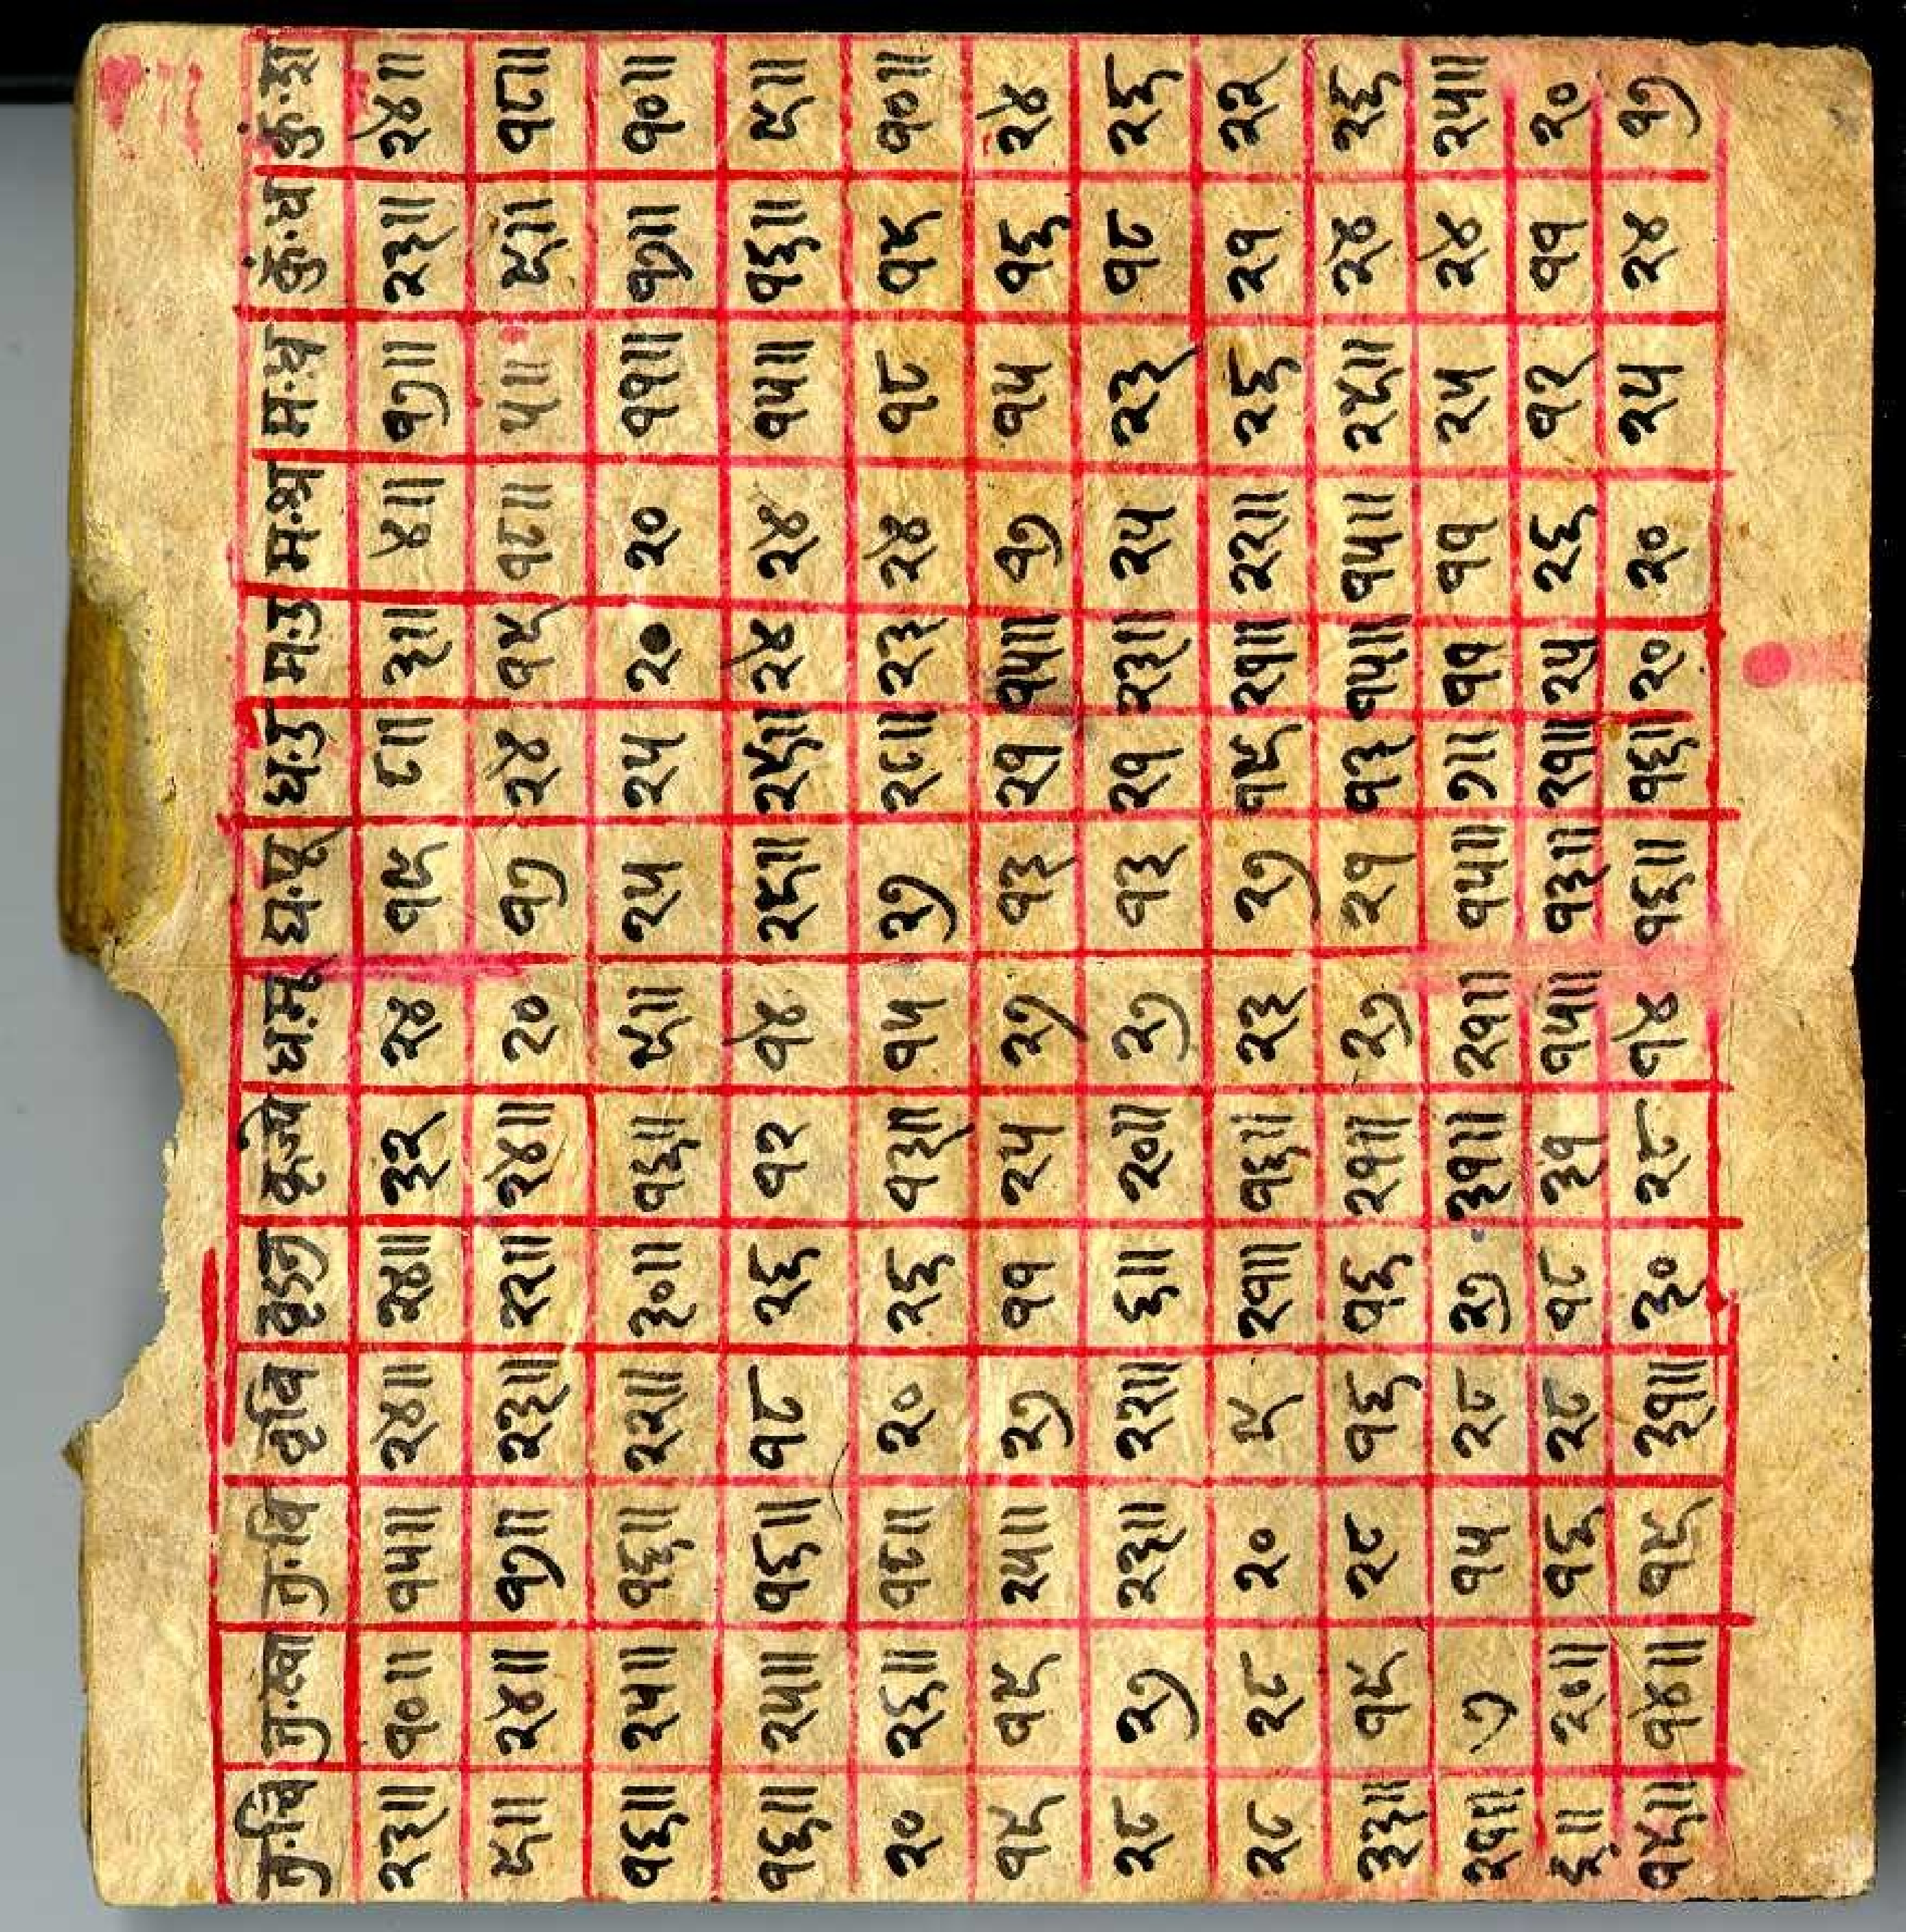 तु·चि तु·स्वा तु·वि वृवि वृऽनु वृज्ये ध·मू ध·पू ध·उ म·उ म·श्र म·ध कुं·ध कुं·श
२३॥ १०॥ १५॥ २४॥ २४॥ ३२ २४ १९ ८॥ ३॥ ४॥ १७॥ २३॥ २४॥
९॥ २४॥ १७॥ २३॥ २२॥ २४॥ २० १७ २४ १९ १८॥ ५॥ ९॥ १८॥
१६॥ २५॥ १६॥ २२॥ ३०॥ १६॥ ९॥ २५ २५ २० २० ११॥ १७॥ १०॥
१६॥ २५॥ १६॥ १८ २६ १२ १४ २९॥ २९॥ २४ २४ १५॥ १६॥ ९॥
२० २६॥ १८॥ २० २६ १३॥ १५ २७ २८॥ २३ २४ १८ १९ १०॥
१९ १९ २५॥ २७ ११ २५ २७ १३ २१ १५॥ १७ १५ १६ २४
२८ २७ २३॥ २२॥ ६॥ २०॥ २७ १३ २१ २३॥ २५ २३ १८ २६
२८ २८ २० ९ २१॥ १६॥ २३ २७ १९ २१॥ २२॥ २६ २१ २२
३३॥ १९ २८ १६ १६ २१॥ २७ २१ १३ १५॥ १५॥ २९॥ २४ २६
२१॥ ७ १५ २८ २७ ३१॥ २१॥ १५॥ ७॥ ११ ११ २५ २४ २५॥
६॥ २०॥ १६ २८ १८ ३१ १५॥ १३॥ २५ २६ १२ ११ २०
१९॥ १४॥ १९ ३१॥ ३० २८ १४ १६॥ १६॥ २० २० २५ २४ १७